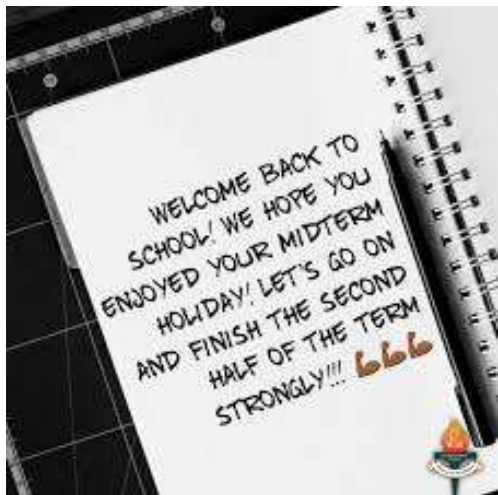 WELCOME BACK TO
SCHOOL! WE HOPE YOU
ENJOYED YOUR MIDTERM
HOLIDAY! LET'S GO ON
AND FINISH THE SECOND
HALF OF THE TERM
STRONGLY!!! 💪🏾💪🏾💪🏾